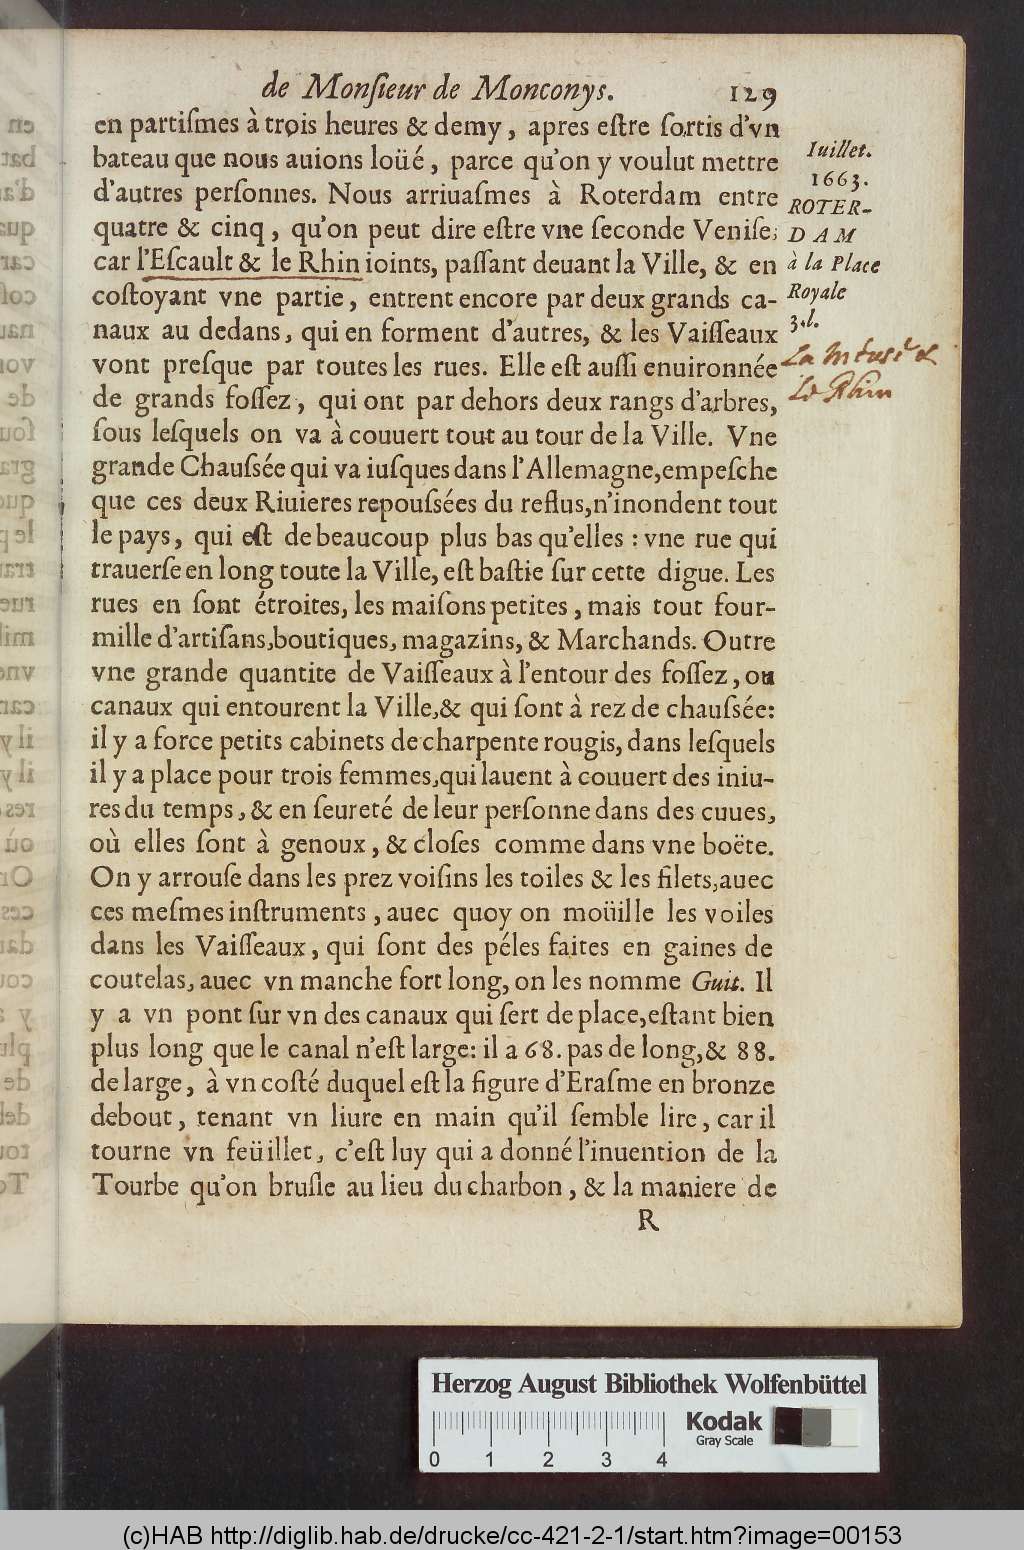 de Monſieur de Monconys. 129
en partiſmes à trois heures & demy, apres eſtre ſortis d'vn
bateau que nous auions loüé, parce qu'on y voulut mettre
d'autres perſonnes. Nous arriuaſmes à Roterdam entre
quatre & cinq, qu'on peut dire eſtre vne ſeconde Veniſe;
car l'Eſcault & le Rhin ioints, paſſant deuant la Ville, & en
coſtoyant vne partie, entrent encore par deux grands ca-
naux au dedans, qui en forment d'autres, & les Vaiſſeaux
vont preſque par toutes les rues. Elle eſt auſſi enuironnée
de grands foſſez, qui ont par dehors deux rangs d'arbres,
ſous leſquels on va à couuert tout au tour de la Ville. Vne
grande Chauſsée qui va iuſques dans l'Allemagne, empeſche
que ces deux Riuieres repouſsées du reflus, n'inondent tout
le pays, qui eſt de beaucoup plus bas qu'elles : vne rue qui
trauerſe en long toute la Ville, eſt baſtie ſur cette digue. Les
rues en ſont étroites, les maiſons petites, mais tout four-
mille d'artiſans, boutiques, magazins, & Marchands. Outre
vne grande quantite de Vaiſſeaux à l'entour des foſſez, ou
canaux qui entourent la Ville, & qui ſont à rez de chauſsée:
il y a force petits cabinets de charpente rougis, dans leſquels
il y a place pour trois femmes, qui lauent à couuert des iniu-
res du temps, & en ſeureté de leur perſonne dans des cuues,
où elles ſont à genoux, & cloſes comme dans vne boëte.
On y arrouſe dans les prez voiſins les toiles & les filets, auec
ces meſmes inſtruments, auec quoy on moüille les voiles
dans les Vaiſſeaux, qui ſont des péles faites en gaines de
coutelas, auec vn manche fort long, on les nomme Guit. Il
y a vn pont ſur vn des canaux qui ſert de place, eſtant bien
plus long que le canal n'eſt large: il a 68. pas de long, & 88.
de large, à vn coſté duquel eſt la figure d'Eraſme en bronze
debout, tenant vn liure en main qu'il ſemble lire, car il
tourne vn feüillet, c'eſt luy qui a donné l'inuention de la
Tourbe qu'on bruſle au lieu du charbon, & la maniere de
R
Iuillet.
1663.
ROTER-
DAM
à la Place
Royale
3.l.
La Meuse &
Le Rhin
Herzog August Bibliothek Wolfenbüttel
Kodak
Gray Scale
0 1 2 3 4
(c)HAB http://diglib.hab.de/drucke/cc-421-2-1/start.htm?image=00153